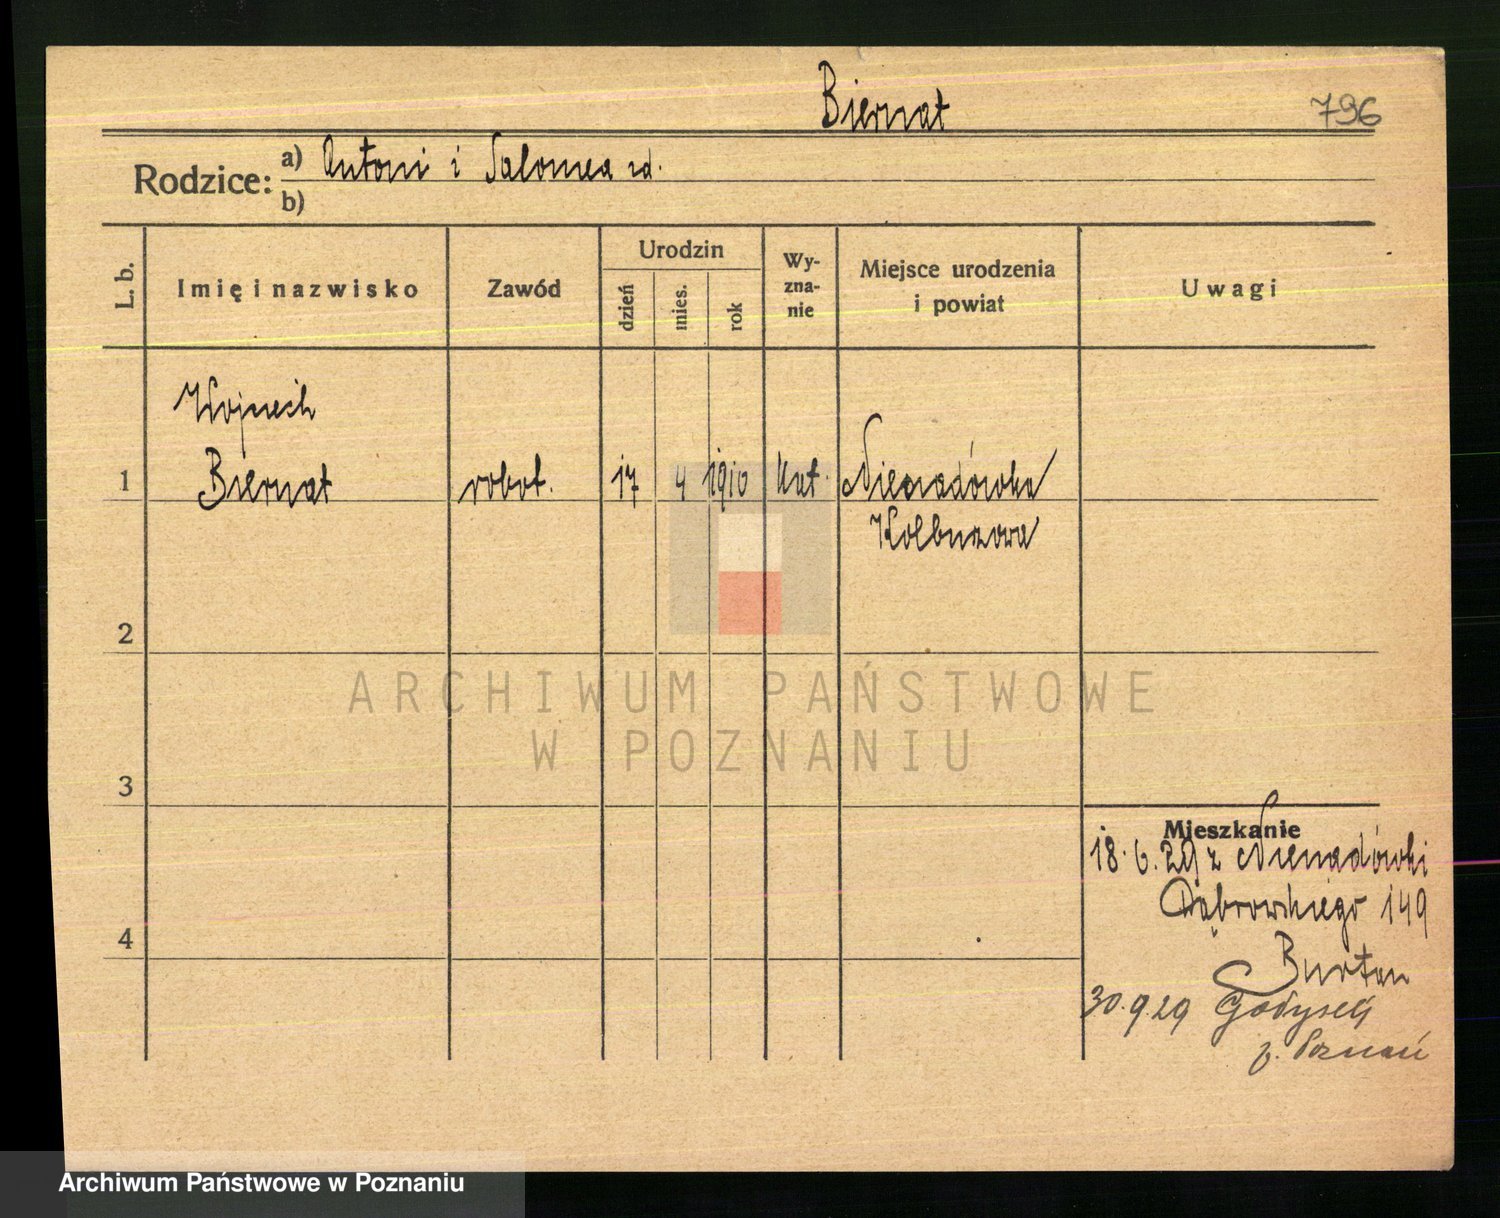 Biernat
796
Rodzice: a) Antoni i Salomea zd.
b)
L. b.
Imię i nazwisko
Zawód
Urodzin
dzień
mies.
rok
Wy-
zna-
nie
Miejsce urodzenia
i powiat
Uwagi
Wojciech
1 Biernat robot. 17 4 1910 kat. Nienadówka
Kolbuszowa
2
ARCHIWUM PAŃSTWOWE
W POZNANIU
3
Mieszkanie
18.6.29 z Nienadówki
Dąbrowskiego 149
4
30.9.29
p. Poznań
Archiwum Państwowe w Poznaniu